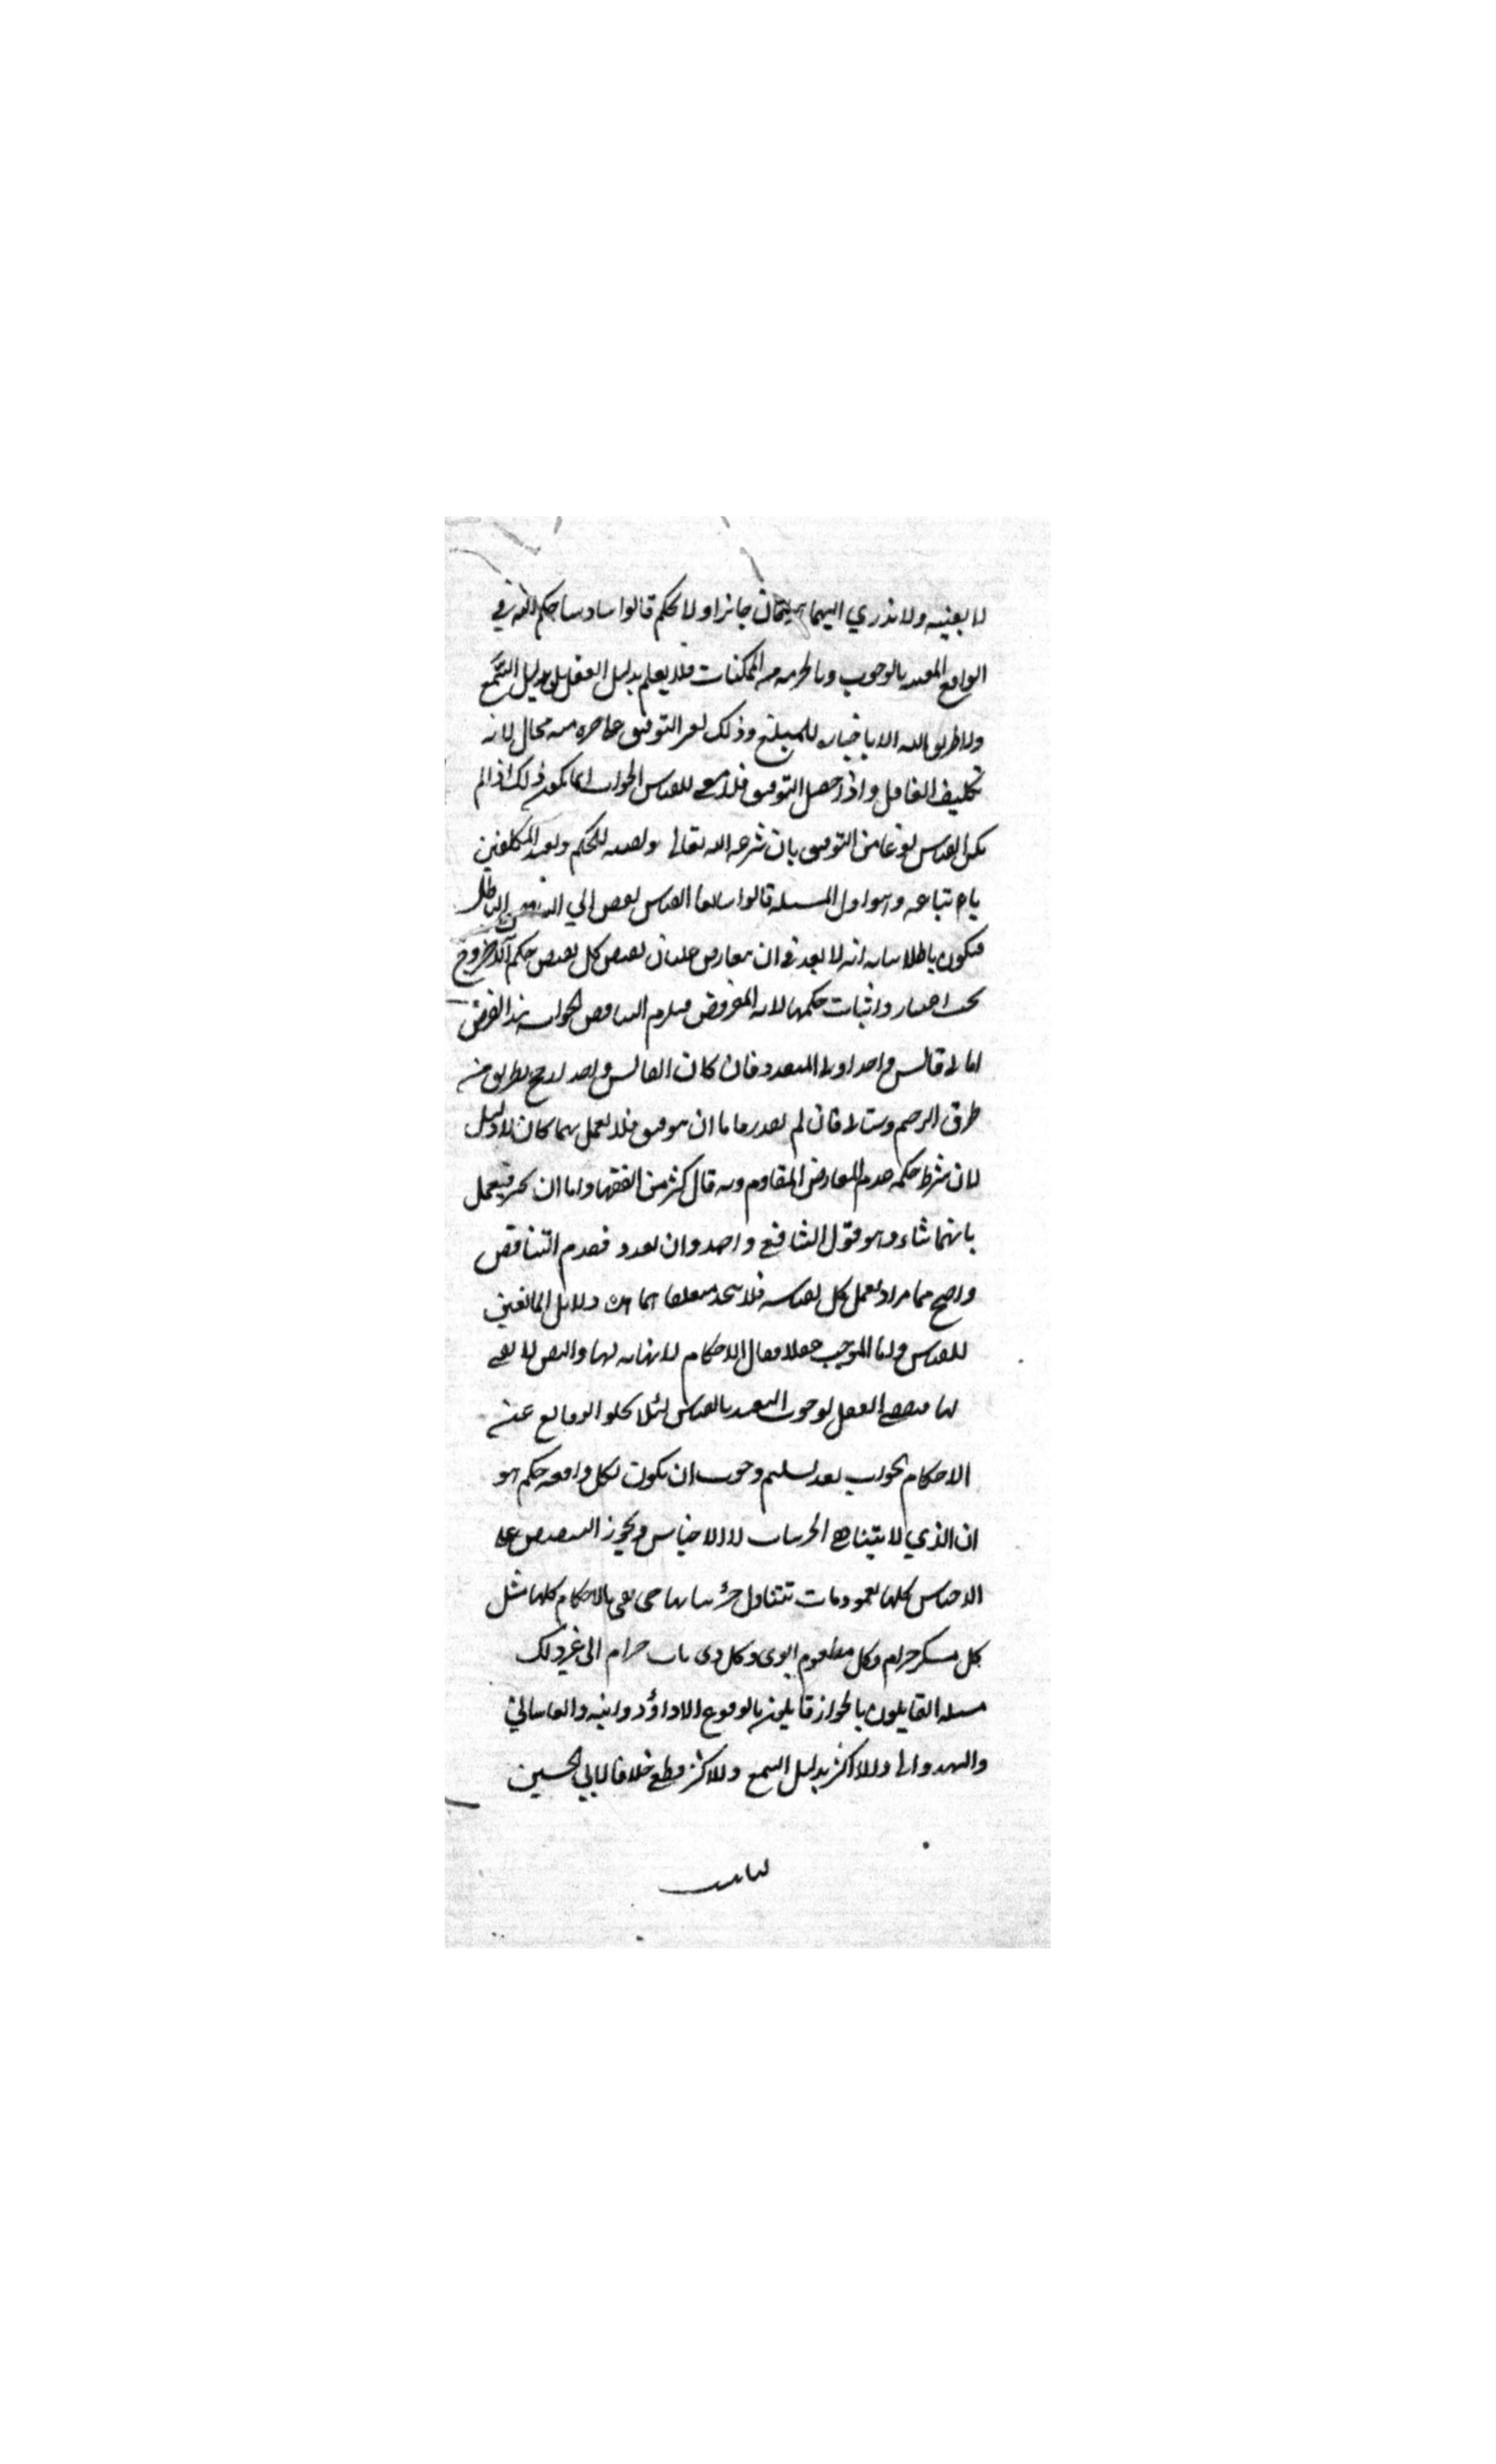 لا بعينه ولا ندري ايهما جائزا ولا لحكم قالوا سادسا حكم الله في
الواقع المعبد بالوجوب وبالحرمه من الممكنات فلا يعلم بدليل العقل بل بدليل السمع
ولا طريق اليه الا باخباره للمبلغ وذلك لعر التوفيق محال لانه
تكليف الغافل واذا حصل التوقيف فلا للقياس الجواب انما يكون ذلك اذا لم
يكن القياس نوعا من التوقيف بان شرعه الله تعالى ونصبه للحكم وتعبد المكلفين
باتباعه وهو اول المسئله قالوا سابعا القياس يفضي الي الباطل
فيكون باطلا بيانه انه لا بعد في ان يتعارض علتان يقتضي كل نقيض حكم الاخر
اعتبار واثبات حكمهما لانه المفروض فيلزم التناقض الجواب هذا الفرض
اما لقائس واحد او للمتعدد فان كان القائس واحد رجح بطريق من
طرق الترجيح فان لم يقدر فاما ان يتوقف فلا يعمل بهما كان لا دليل
لان شرط حكمه عدم المعارض المقاوم وبه قال كثر من الفقها واما ان يخير فيعمل
بايهما شاء وهو قول الشافعي واحمد وان تعدد فعدم التناقض
واضح يعمل كل بقياسه فلا يتحد متعلقاهما دلايل المانعين
للقياس واما الموجب عقلا فقال الاحكام لا نهايه لها والنص لا يفي
بها فيقضي العقل لوجوب التعبد بالقياس لئلا تخلوا الوقايع عن
الاحكام الجواب بعد تسليم وجوب ان يكون لكل واقعه حكم هو
ان الذي لا يتناهى الجزيات لا الاجناس ويجوز التنصيص على
الاجناس كلها بعمومات تتناول جزئياتها حتى يفي بالاحكام كلها مثل
كل مسكر حرام وكل مطعوم ربوي وكل ذي ناب حرام الى غير ذلك
مسئله القايلون بالجواز قايلون بالوقوع الا داؤد وابنه والقاساني
والنهرواني والاكثر بدليل السمع والاكثر قطعي خلافا لابي الحسين
لنا